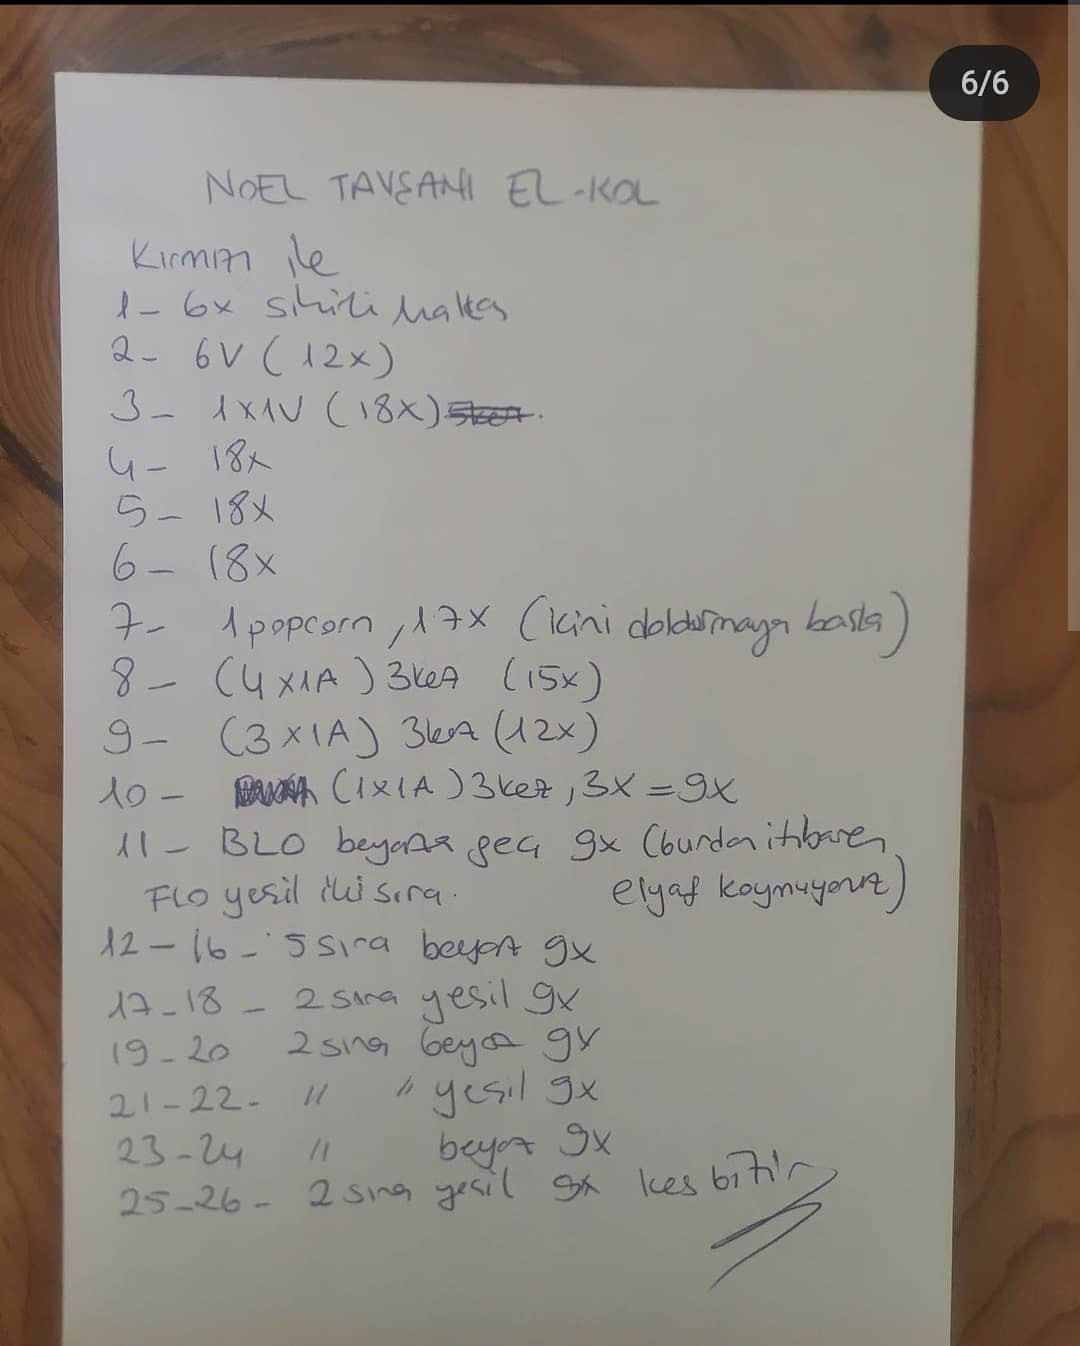 6/6
NOEL TAVŞANI EL-KOL
Kırmızı ile
1- 6x sihirli halka
2- 6V (12x)
3- 1x1V (18x)
4- 18x
5- 18x
6- 18x
7- 1popcorn, 17x (içini doldurmaya başla)
8- (4x1A) 3kez (15x)
9- (3x1A) 3kez (12x)
10- (1x1A) 3kez, 3x = 9x
11- BLO beyaza geç 9x (burdan itibaren
FLO yeşil iki sıra. elyaf koymuyoruz)
12-16- 5 sıra beyaz 9x
17-18- 2 sıra yeşil 9x
19-20 2 sıra beyaz 9x
21-22- " " yeşil 9x
23-24 " beyaz 9x
25-26- 2 sıra yeşil 9x kes bitir